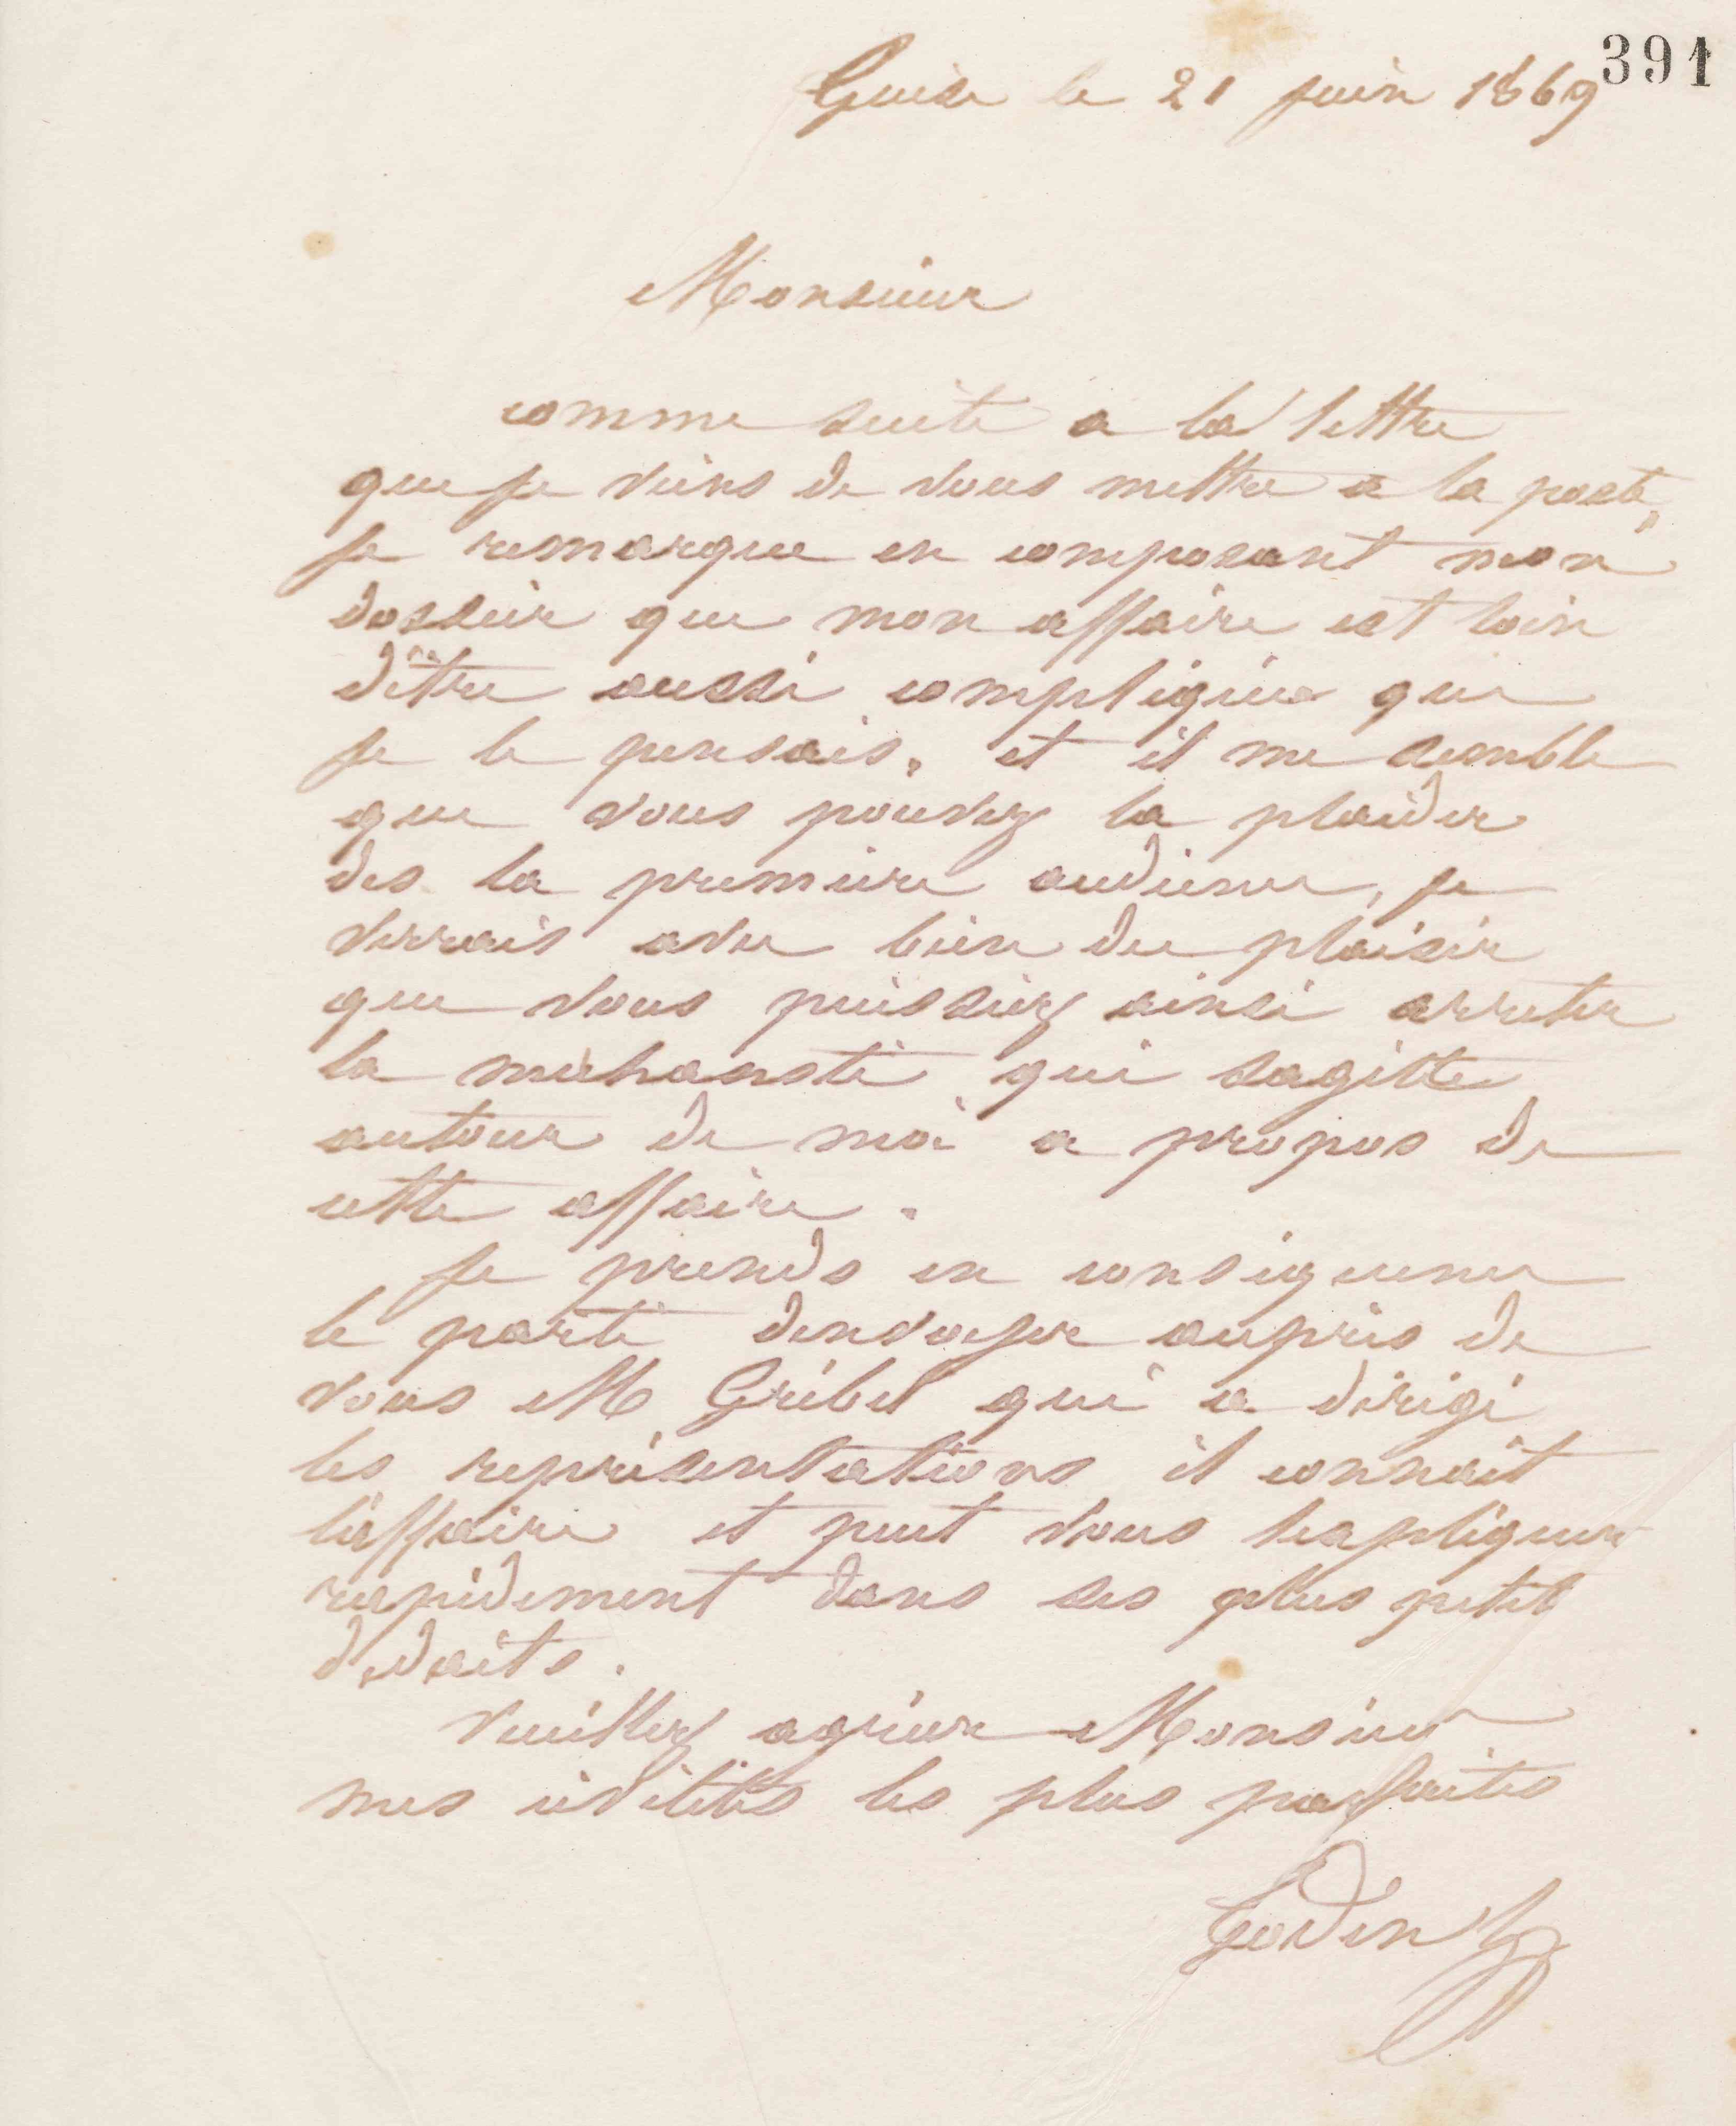 391
Guise le 21 juin 1869
Monsieur
comme suite a la lettre
que je viens de vous mettre a la poste,
je remarque en composant mon
dossier que mon affaire est loin
dêtre aussi compliquée que
je le pensais, et il me semble
que vous pouvez la plaider
des la premiere audience, je
verrais avec bien du plaisir
que vous puissiez ainsi arreter
la mechanseté qui sagitte
autour de moi a propos de
cette affaire.
Je prends en conséquence
le parti denvoyer auprès de
vous M Grebel qui a dirigé
les représentations il connait
l'affaire et peut vous lexpliquer
rapidement dans ses plus petits
details.
Veuillez agréer Monsieur
mes civilités les plus parfaites
Godin